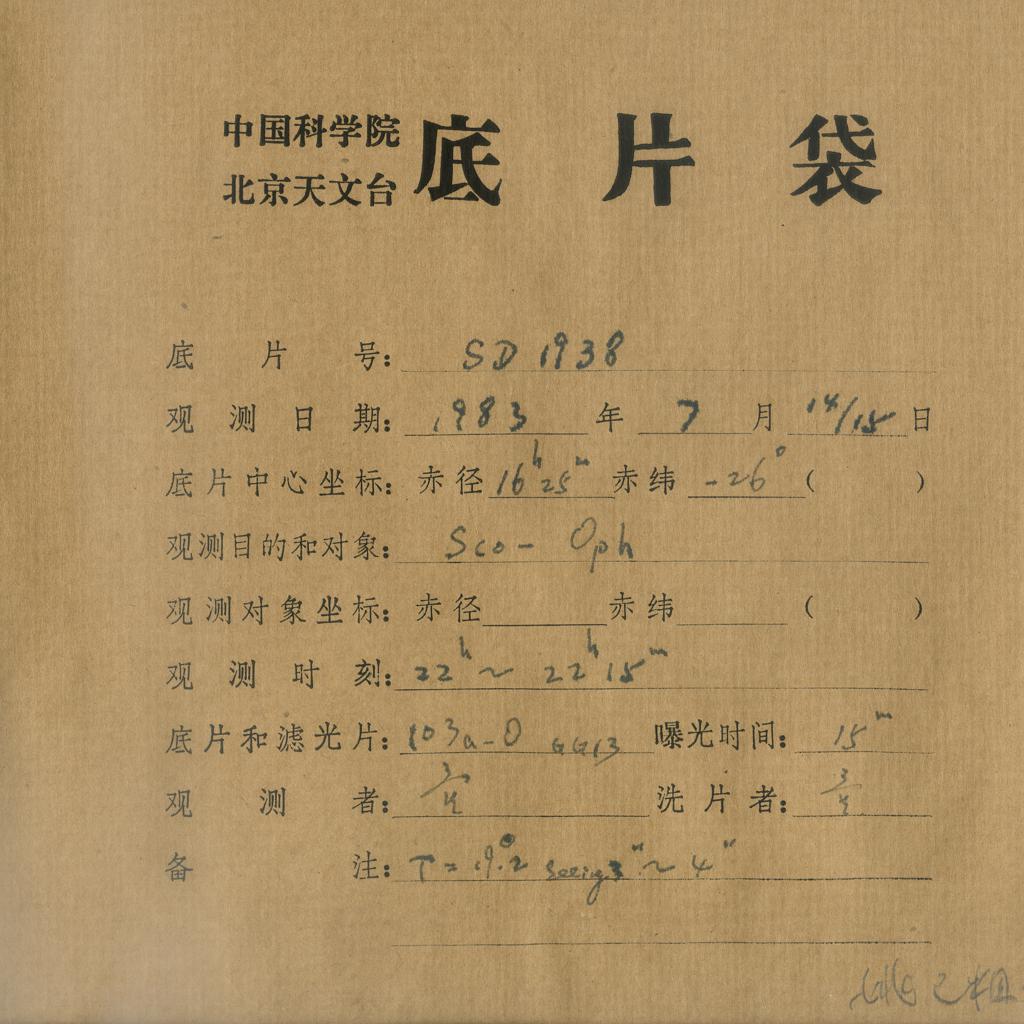 中国科学院
北京天文台
底片袋
底片号: SD 1938
观测日期: 1983 年 7 月 14/15 日
底片中心坐标: 赤径 16h 25m 赤纬 -26° ( )
观测目的和对象: Sco - Oph
观测对象坐标: 赤径 赤纬 ( )
观测时刻: 22h ~ 22h 15m
底片和滤光片: 103a-O GG13 曝光时间: 15m
观测者: 洗片者:
备注: T = 19.°2 seeing 3" ~ 4"